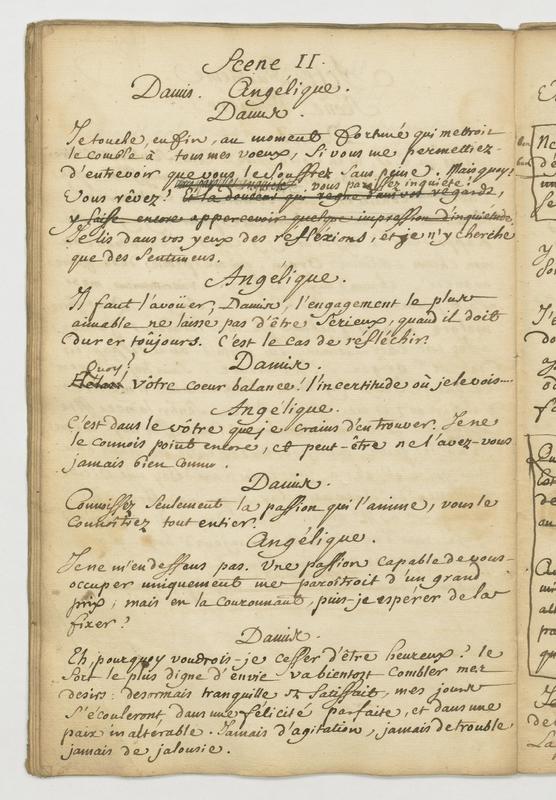 Scene II.
Damis. Angélique.
Damis.
Je touche, enfin, au moment fortuné qui mettroit
le comble à tous mes voeux, si vous me permettiez-
d'entrevoir que vous le souffrez sans peine. Mais quoy!
vous paroissez inquiète!
Vous rêvez? la douceur qui regne dans vos regards,
y laisse encore appercevoir quelque impression d'inquiétude.
Je lis dans vos yeux des refléxions, et je n'y cherche
que des sentimens.
Angélique.
Il faut l'avoüer, Damis, l'engagement le plus
aimable ne laisse pas d'être serieux, quand il doit
durer toûjours. C'est le cas de réfléchir.
Damis.
Quoy?
vôtre coeur balance! l'incertitude où je le vois....
Angélique.
C'est dans le vôtre que je crains d'en trouver. Je ne
le connois point encore, et peut-être ne l'avez-vous
jamais bien connu.
Damis.
Connoissez seulement la passion qui l'anime, vous le
connoîtrez tout entier.
Angélique.
Je ne m'en deffens pas. Une passion capable de vous-
occuper uniquement me paroîtroit d'un grand
prix; mais en la couronnant, puis-je espérer de la
fixer?
Damis.
Eh, pourquoy voudrois-je cesser d'être heureux? le
sort le plus digne d'envie va bientost combler mes
desirs: desormais tranquille et satisfait, mes jours
s'écouleront, dans une félicité parfaite, et dans une
paix inalterable. Jamais d'agitation, jamais de trouble,
jamais de jalousie.